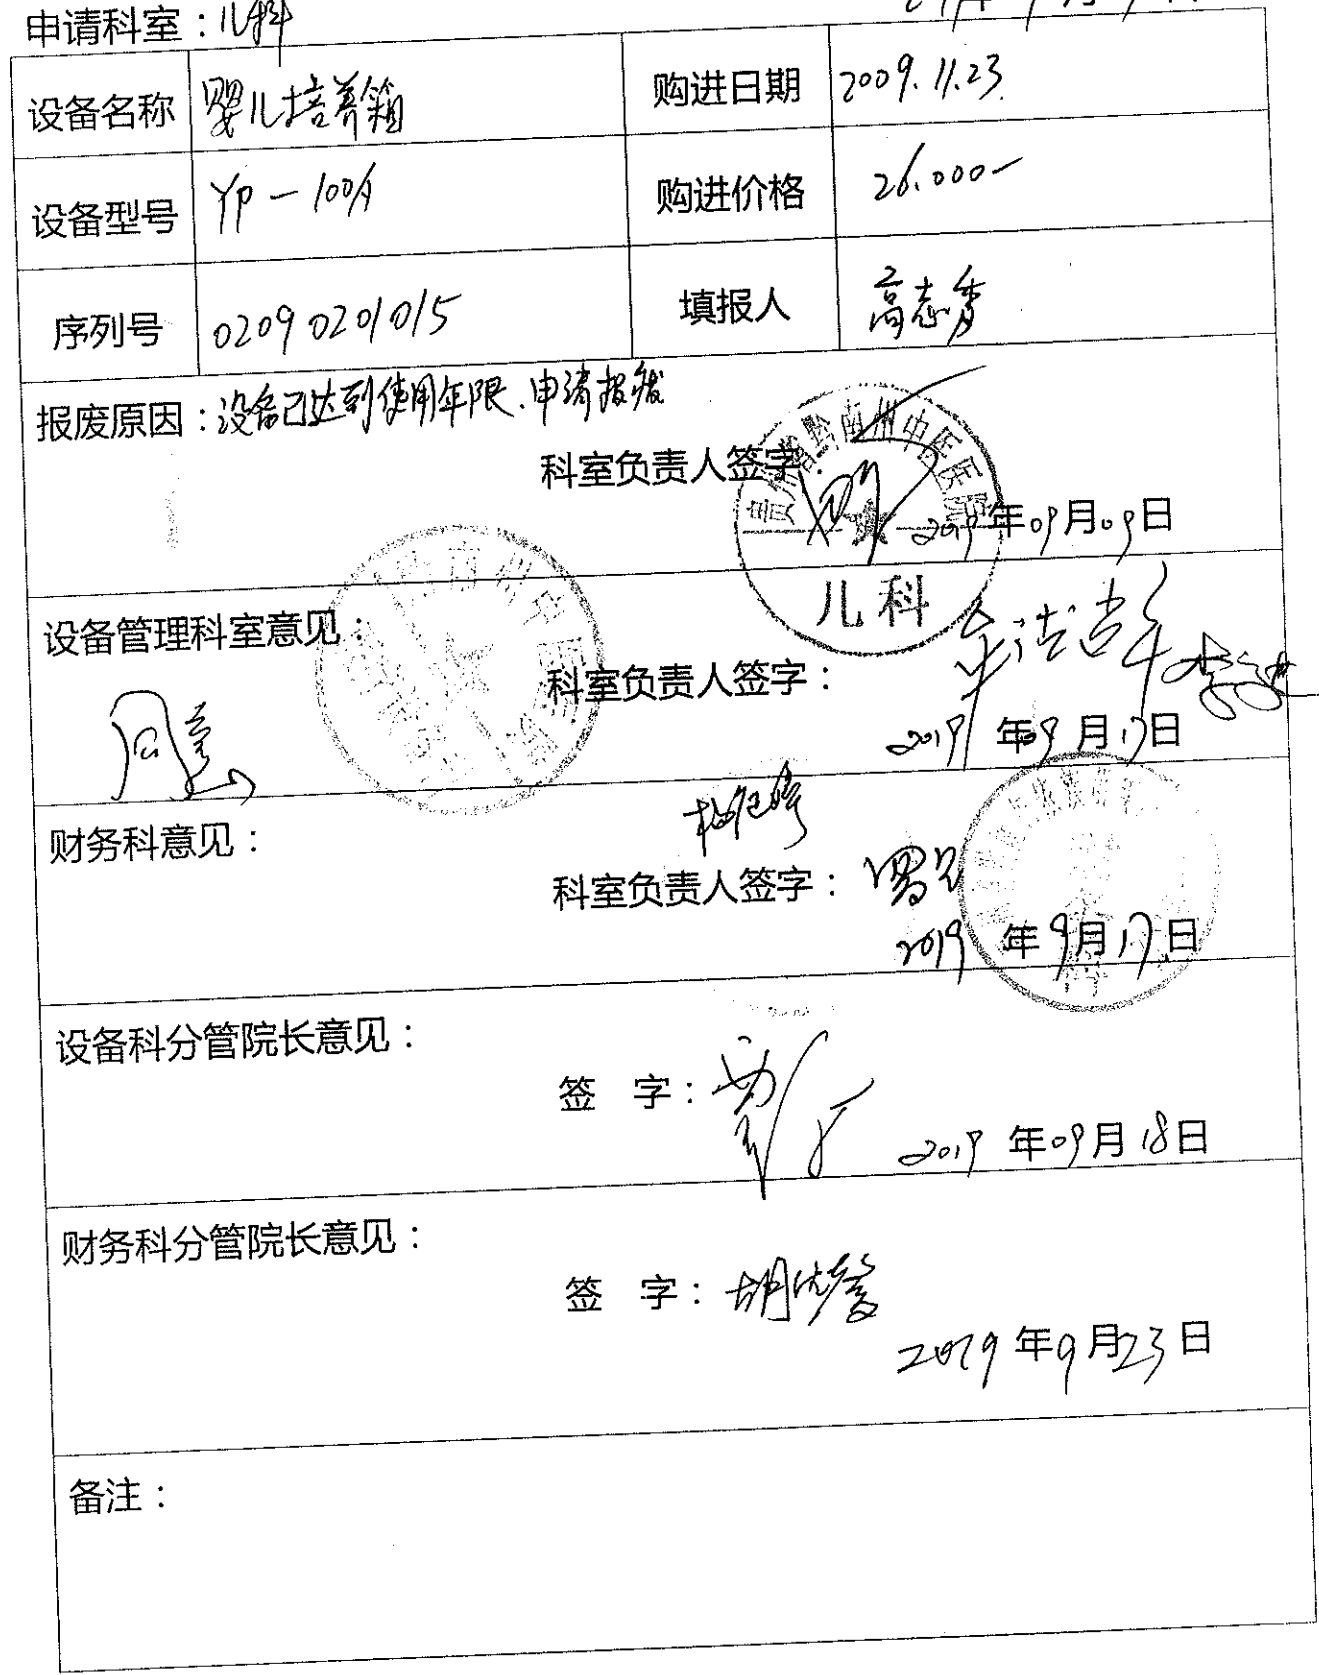 申请科室：儿科
设备名称 婴儿培养箱 购进日期 2009.11.23
设备型号 YP-100A 购进价格 26.000-
序列号 02090201015 填报人 高志秀
报废原因：设备已达到使用年限.申请报废
科室负责人签字：
贵州省黔南州中医医院
2019年09月09日
儿科
设备管理科室意见：
科室负责人签字：
同意
2019年09月17日
财务科意见：
科室负责人签字：
2019年9月17日
设备科分管院长意见：
签 字：
2019年09月18日
财务科分管院长意见：
签 字：
2019年9月23日
备注：